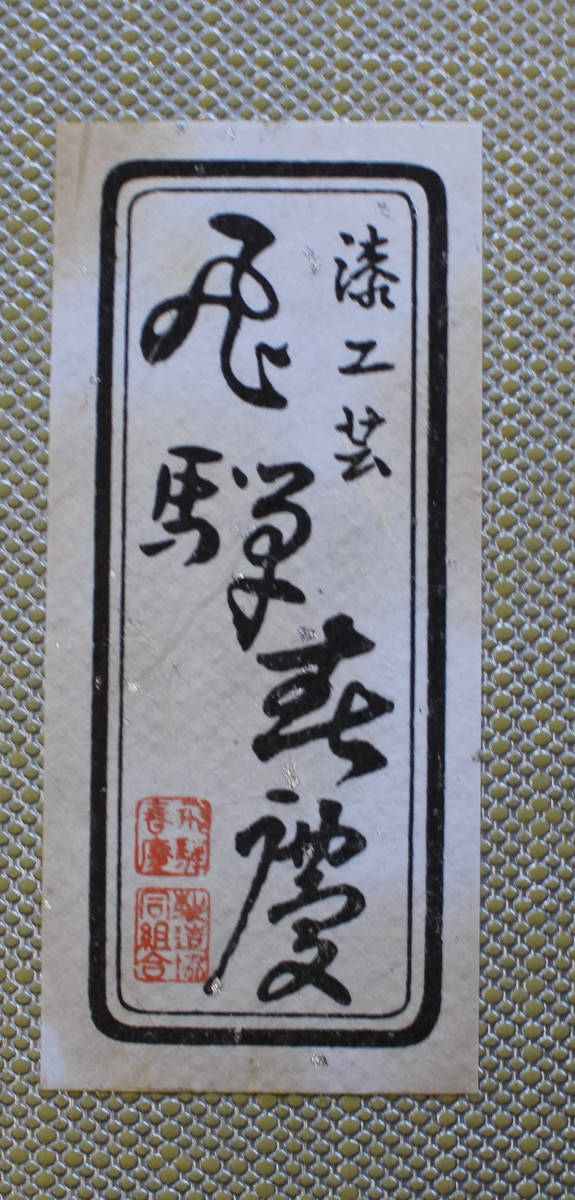 漆工芸
飛驒春慶
飛驒
春慶
製造協
同組合